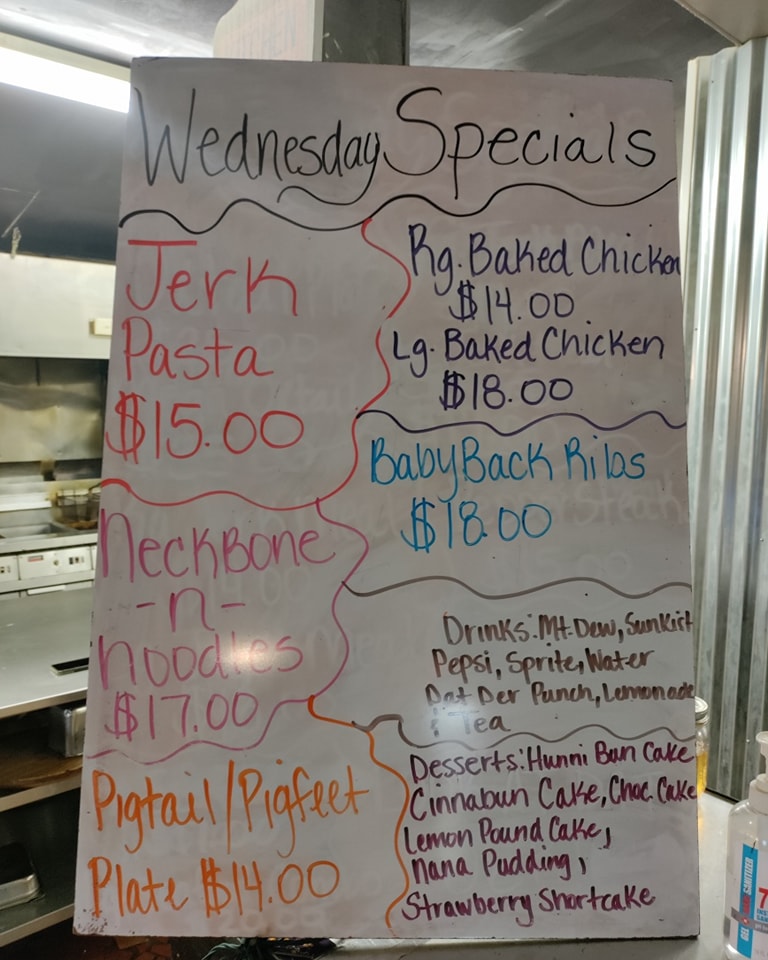 Wednesday Specials
Jerk
Pasta
$15.00
Neckbone
-n-
noodles
$17.00
Pigtail/Pigfeet
Plate $14.00
Rg. Baked Chicken
$14.00
Lg. Baked Chicken
$18.00
BabyBack Ribs
$18.00
Drinks: Mt. Dew, Sunkist
Pepsi, Sprite, Water
Dat Der Punch, Lemonade
& Tea
Desserts: Hunni Bun Cake
Cinnabun Cake, Choc. Cake
Lemon Pound Cake,
Nana Pudding,
Strawberry Shortcake
SANITIZER